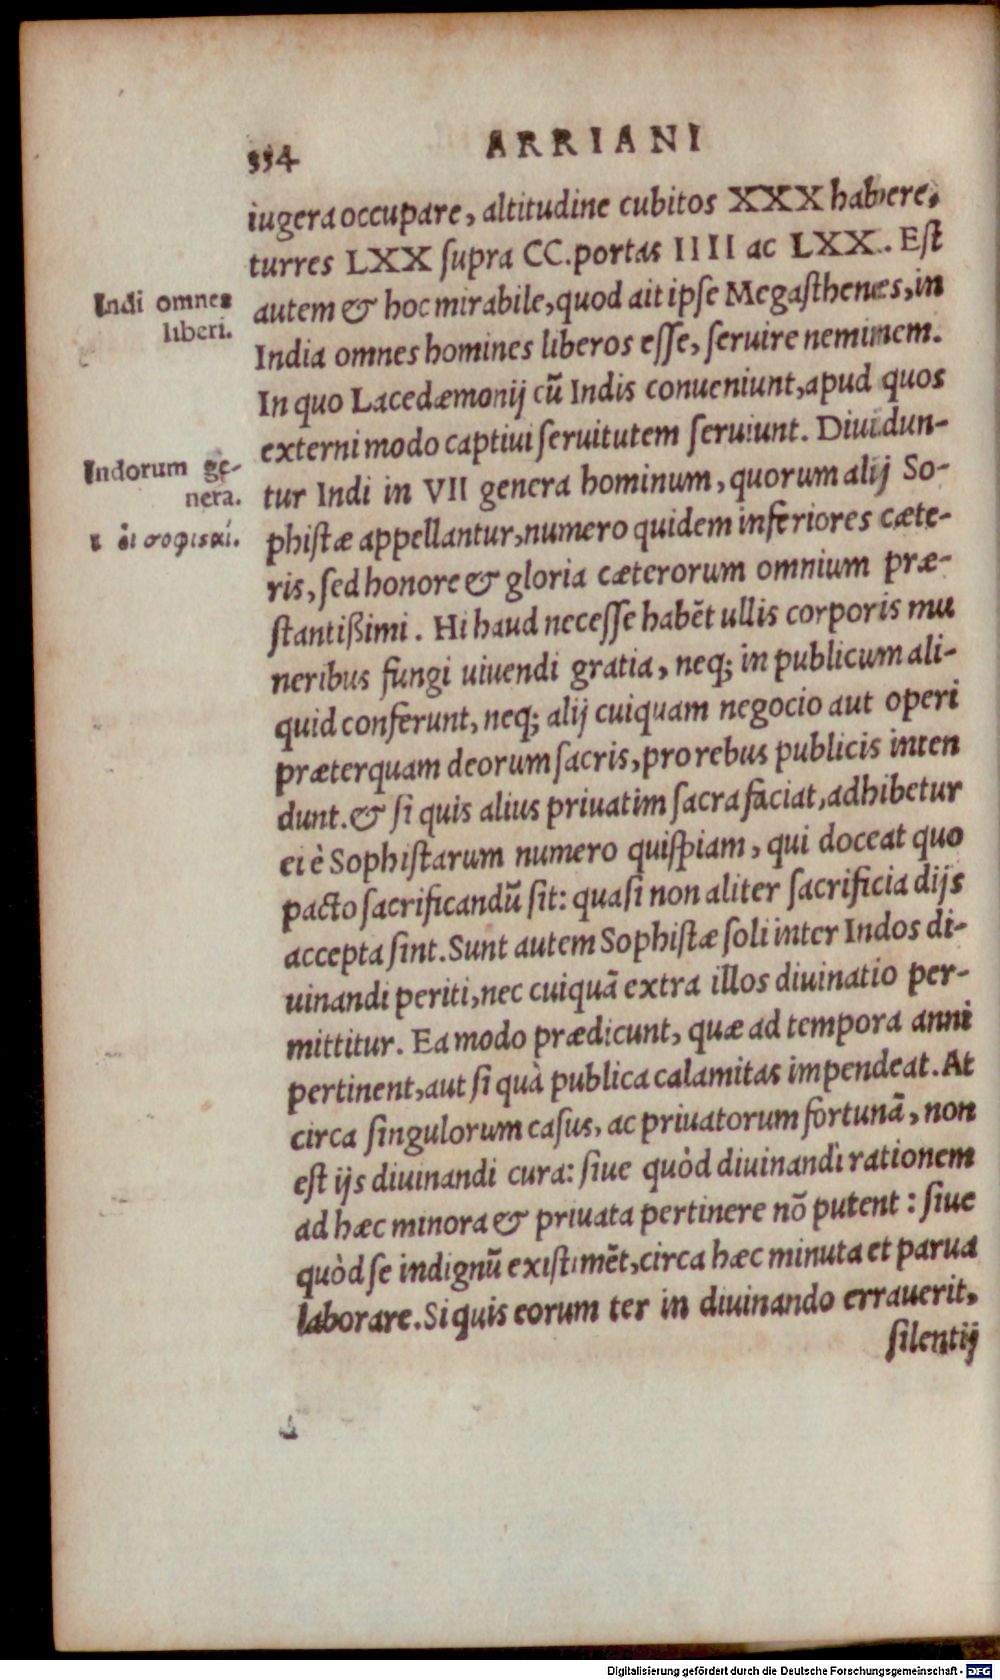 334
ARRIANI
iugera occupare, altitudine cubitos XXX habere,
turres LXX supra CC. portas IIII ac LXX. Est
Indi omnes
liberi.
autem & hoc mirabile, quod ait ipse Megasthenes, in
India omnes homines liberos esse, seruire neminem.
In quo Lacedæmonij cū Indis conueniunt, apud quos
externi modo captiui seruitutem seruiunt. Diuidun-
Indorum ge-
nera.
tur Indi in VII genera hominum, quorum alij So-
1 οἱ σοφισαί.
phistæ appellantur, numero quidem inferiores cæte-
ris, sed honore & gloria cæterorum omnium præ-
stantißimi. Hi haud necesse habēt ullis corporis mu
neribus fungi uiuendi gratia, neq; in publicum ali-
quid conferunt, neq; alij cuiquam negocio aut operi
præterquam deorum sacris, pro rebus publicis inten
dunt. & si quis alius priuatim sacra faciat, adhibetur
ei è Sophistarum numero quispiam, qui doceat quo
pacto sacrificandū sit: quasi non aliter sacrificia dijs
accepta sint. Sunt autem Sophistæ soli inter Indos di-
uinandi periti, nec cuiquā extra illos diuinatio per-
mittitur. Ea modo prædicunt, quæ ad tempora anni
pertinent, aut si quà publica calamitas impendeat. At
circa singulorum casus, ac priuatorum fortunā, non
est ijs diuinandi cura: siue quòd diuinandi rationem
ad hæc minora & priuata pertinere nō putent: siue
quòd se indignū existimēt, circa hæc minuta et parua
laborare. Si quis eorum ter in diuinando errauerit,
silentij
Digitalisierung gefördert durch die Deutsche Forschungsgemeinschaft - DFG